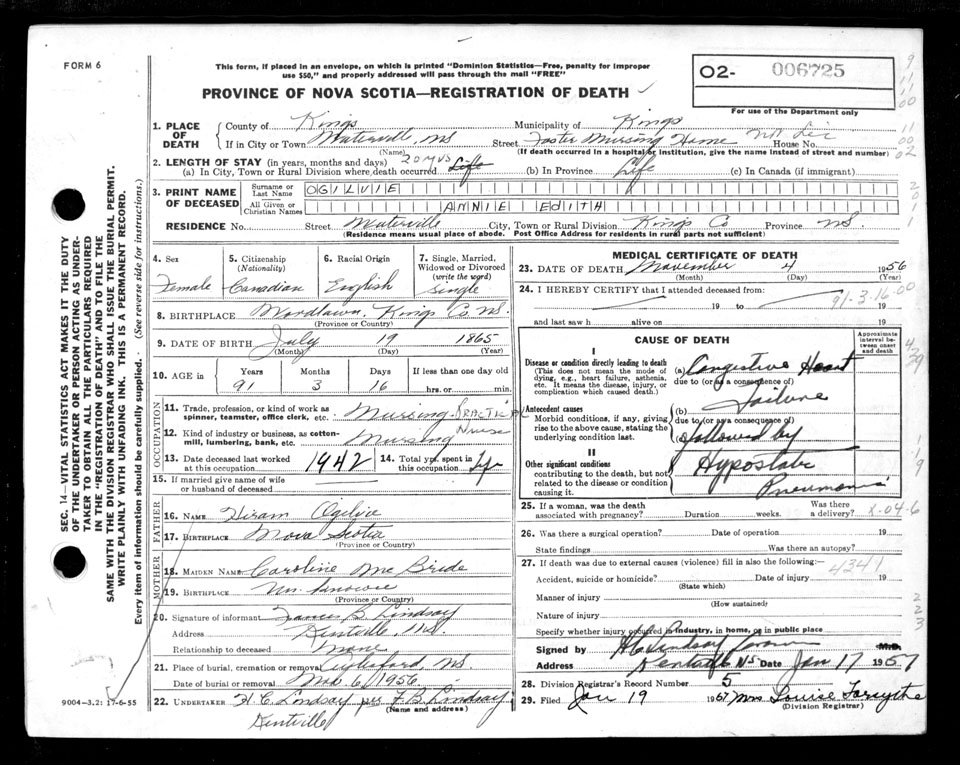 FORM 6
This form, if placed in an envelope, on which is printed "Dominion Statistics—Free, penalty for improper
use $50," and properly addressed will pass through the mail "FREE"
PROVINCE OF NOVA SCOTIA—REGISTRATION OF DEATH
O2- 006725
For use of the Department only
SEC. 14—VITAL STATISTICS ACT MAKES IT THE DUTY
OF THE UNDERTAKER OR PERSON ACTING AS UNDER-
TAKER TO OBTAIN ALL THE PARTICULARS REQUIRED
IN THE "REGISTRATION OF DEATH" AND TO FILE THE
SAME WITH THE DIVISION REGISTRAR WHO SHALL ISSUE THE BURIAL PERMIT.
WRITE PLAINLY WITH UNFADING INK. THIS IS A PERMANENT RECORD.
Every item of information should be carefully supplied. (See reverse side for instructions.)
1. PLACE OF DEATH
County of Kings Municipality of Kings
If in City or Town Waterville, NS Street Foster Nursing Home House No.
(Name) (If death occurred in a hospital or institution, give the name instead of street and number)
2. LENGTH OF STAY (in years, months and days)
(a) In City, Town or Rural Division where death occurred 20 yrs Life (b) In Province Life (c) In Canada (if immigrant)
3. PRINT NAME OF DECEASED
Surname or Last Name OGILVIE
All Given or Christian Names ANNIE EDITH
RESIDENCE No. Street Waterville City, Town or Rural Division Kings Co Province NS
(Residence means usual place of abode. Post Office Address for residents in rural parts not sufficient)
4. Sex Female
5. Citizenship (Nationality) Canadian
6. Racial Origin English
7. Single, Married, Widowed or Divorced (write the word) Single
8. BIRTHPLACE Kings Co. NS.
(Province or Country)
9. DATE OF BIRTH July 19 1865
(Month) (Day) (Year)
10. AGE in Years Months Days If less than one day old
91 3 16 hrs. or min.
OCCUPATION
11. Trade, profession, or kind of work as spinner, teamster, office clerk, etc. Nursing Practical Nurse
12. Kind of industry or business, as cotton-mill, lumbering, bank, etc. Nursing
13. Date deceased last worked at this occupation 1942 14. Total yrs. spent in this occupation Life
15. If married give name of wife or husband of deceased
FATHER
16. NAME Hiram Ogilvie
17. BIRTHPLACE Nova Scotia
(Province or Country)
MOTHER
18. MAIDEN NAME Caroline McBride
19. BIRTHPLACE Unknown
(Province or Country)
20. Signature of informant B. Lindsay
Address Kentville, NS.
Relationship to deceased None
21. Place of burial, cremation or removal Aylesford, NS
Date of burial or removal Nov. 6/1956
22. UNDERTAKER H C Lindsay per F B Lindsay
(Name and address)
Kentville
9004—3.2: 17-6-55
MEDICAL CERTIFICATE OF DEATH
23. DATE OF DEATH November 4 1956
(Month) (Day) (Year)
24. I HEREBY CERTIFY that I attended deceased from:
19 to 19
91-3-16.00
and last saw h alive on 19
CAUSE OF DEATH
Approximate interval between onset and death
I
Disease or condition directly leading to death
(This does not mean the mode of dying, e.g., heart failure, asthenia, etc. It means the disease, injury, or complication which caused death.)
(a) Congestive Heart
due to (or as a consequence of)
Failure
Antecedent causes
Morbid conditions, if any, giving rise to the above cause, stating the underlying condition last.
(b)
due to (or as a consequence of)
(c) followed by
II
Other significant conditions
contributing to the death, but not related to the disease or condition causing it.
Hypostatic
Pneumonia
25. If a woman, was the death associated with pregnancy? Duration weeks. Was there a delivery?
26. Was there a surgical operation? Date of operation 19
State findings Was there an autopsy?
27. If death was due to external causes (violence) fill in also the following:—
4341
Accident, suicide or homicide? Date of injury 19
(State which)
Manner of injury
(How sustained)
Nature of injury
Specify whether injury occurred in industry, in home, or in public place
Signed by M.D.
Address Kentville NS Date Jan 17 1957
28. Division Registrar's Record Number 5
29. Filed Jan 19 1957 Mrs Louise Forsythe
(Division Registrar)